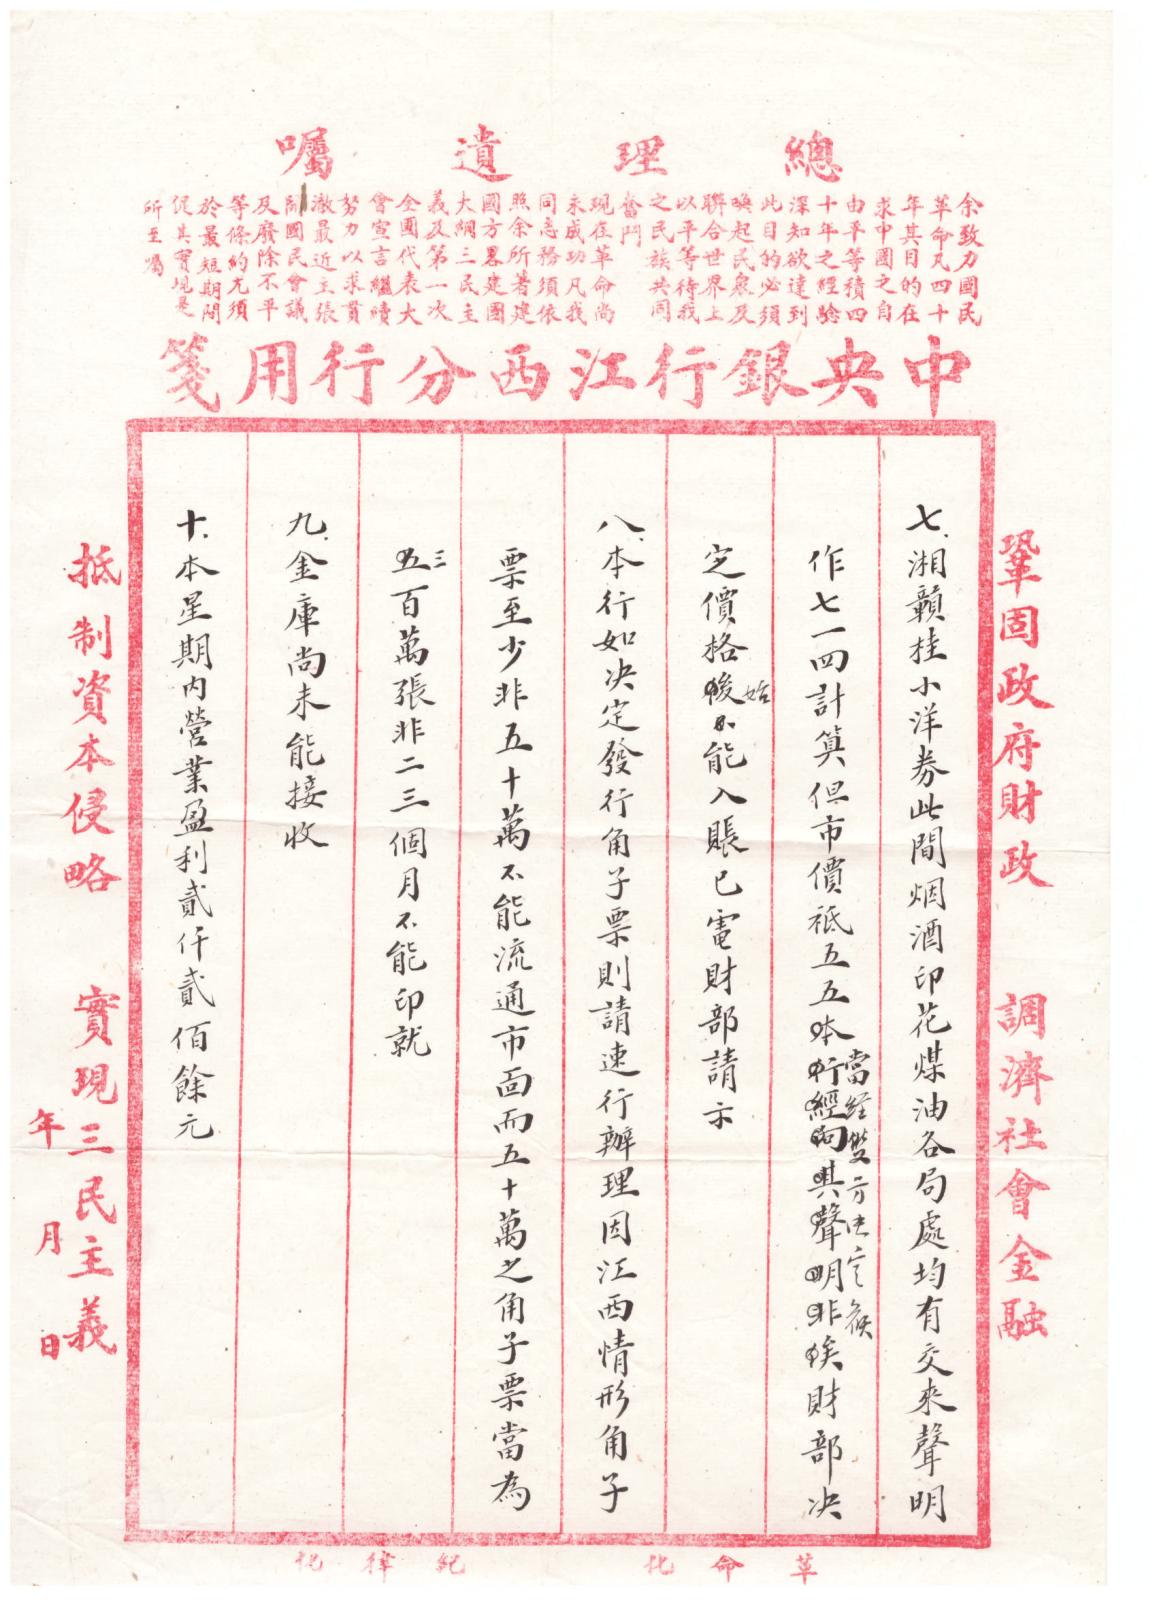 總理遺囑
余致力國民
革命凡四十
年其目的在
求中國之自
由平等積四
十年之經驗
深知欲達到
此目的必須
喚起民眾及
聯合世界上
以平等待我
之民族共同
奮鬥
現在革命尚
未成功凡我
同志務須依
照余所著建
國方畧建國
大綱三民主
義及第一次
全國代表大
會宣言繼續
努力以求貫
澈最近主張
開國民會議
及廢除不平
等條約尤須
於最短期間
促其實現是
所至囑
中央銀行江西分行用箋
鞏固政府財政 調濟社會金融
七、湘贛桂小洋券此間烟酒印花煤油各局處均有交來聲明
作七一四計算但市價祗五五本行經向其聲明非俟財部決
當經雙方法定候
定價格後不能入賬已電財部請示
始
八、本行如決定發行角子票則請速行辦理因江西情形角子
票至少非五十萬不能流通市面而五十萬之角子票當為
五百萬張非二三個月不能印就
三
九、金庫尚未能接收
十、本星期內營業盈利貳仟貳佰餘元
抵制資本侵略 實現三民主義
年 月 日
革命化 紀律化